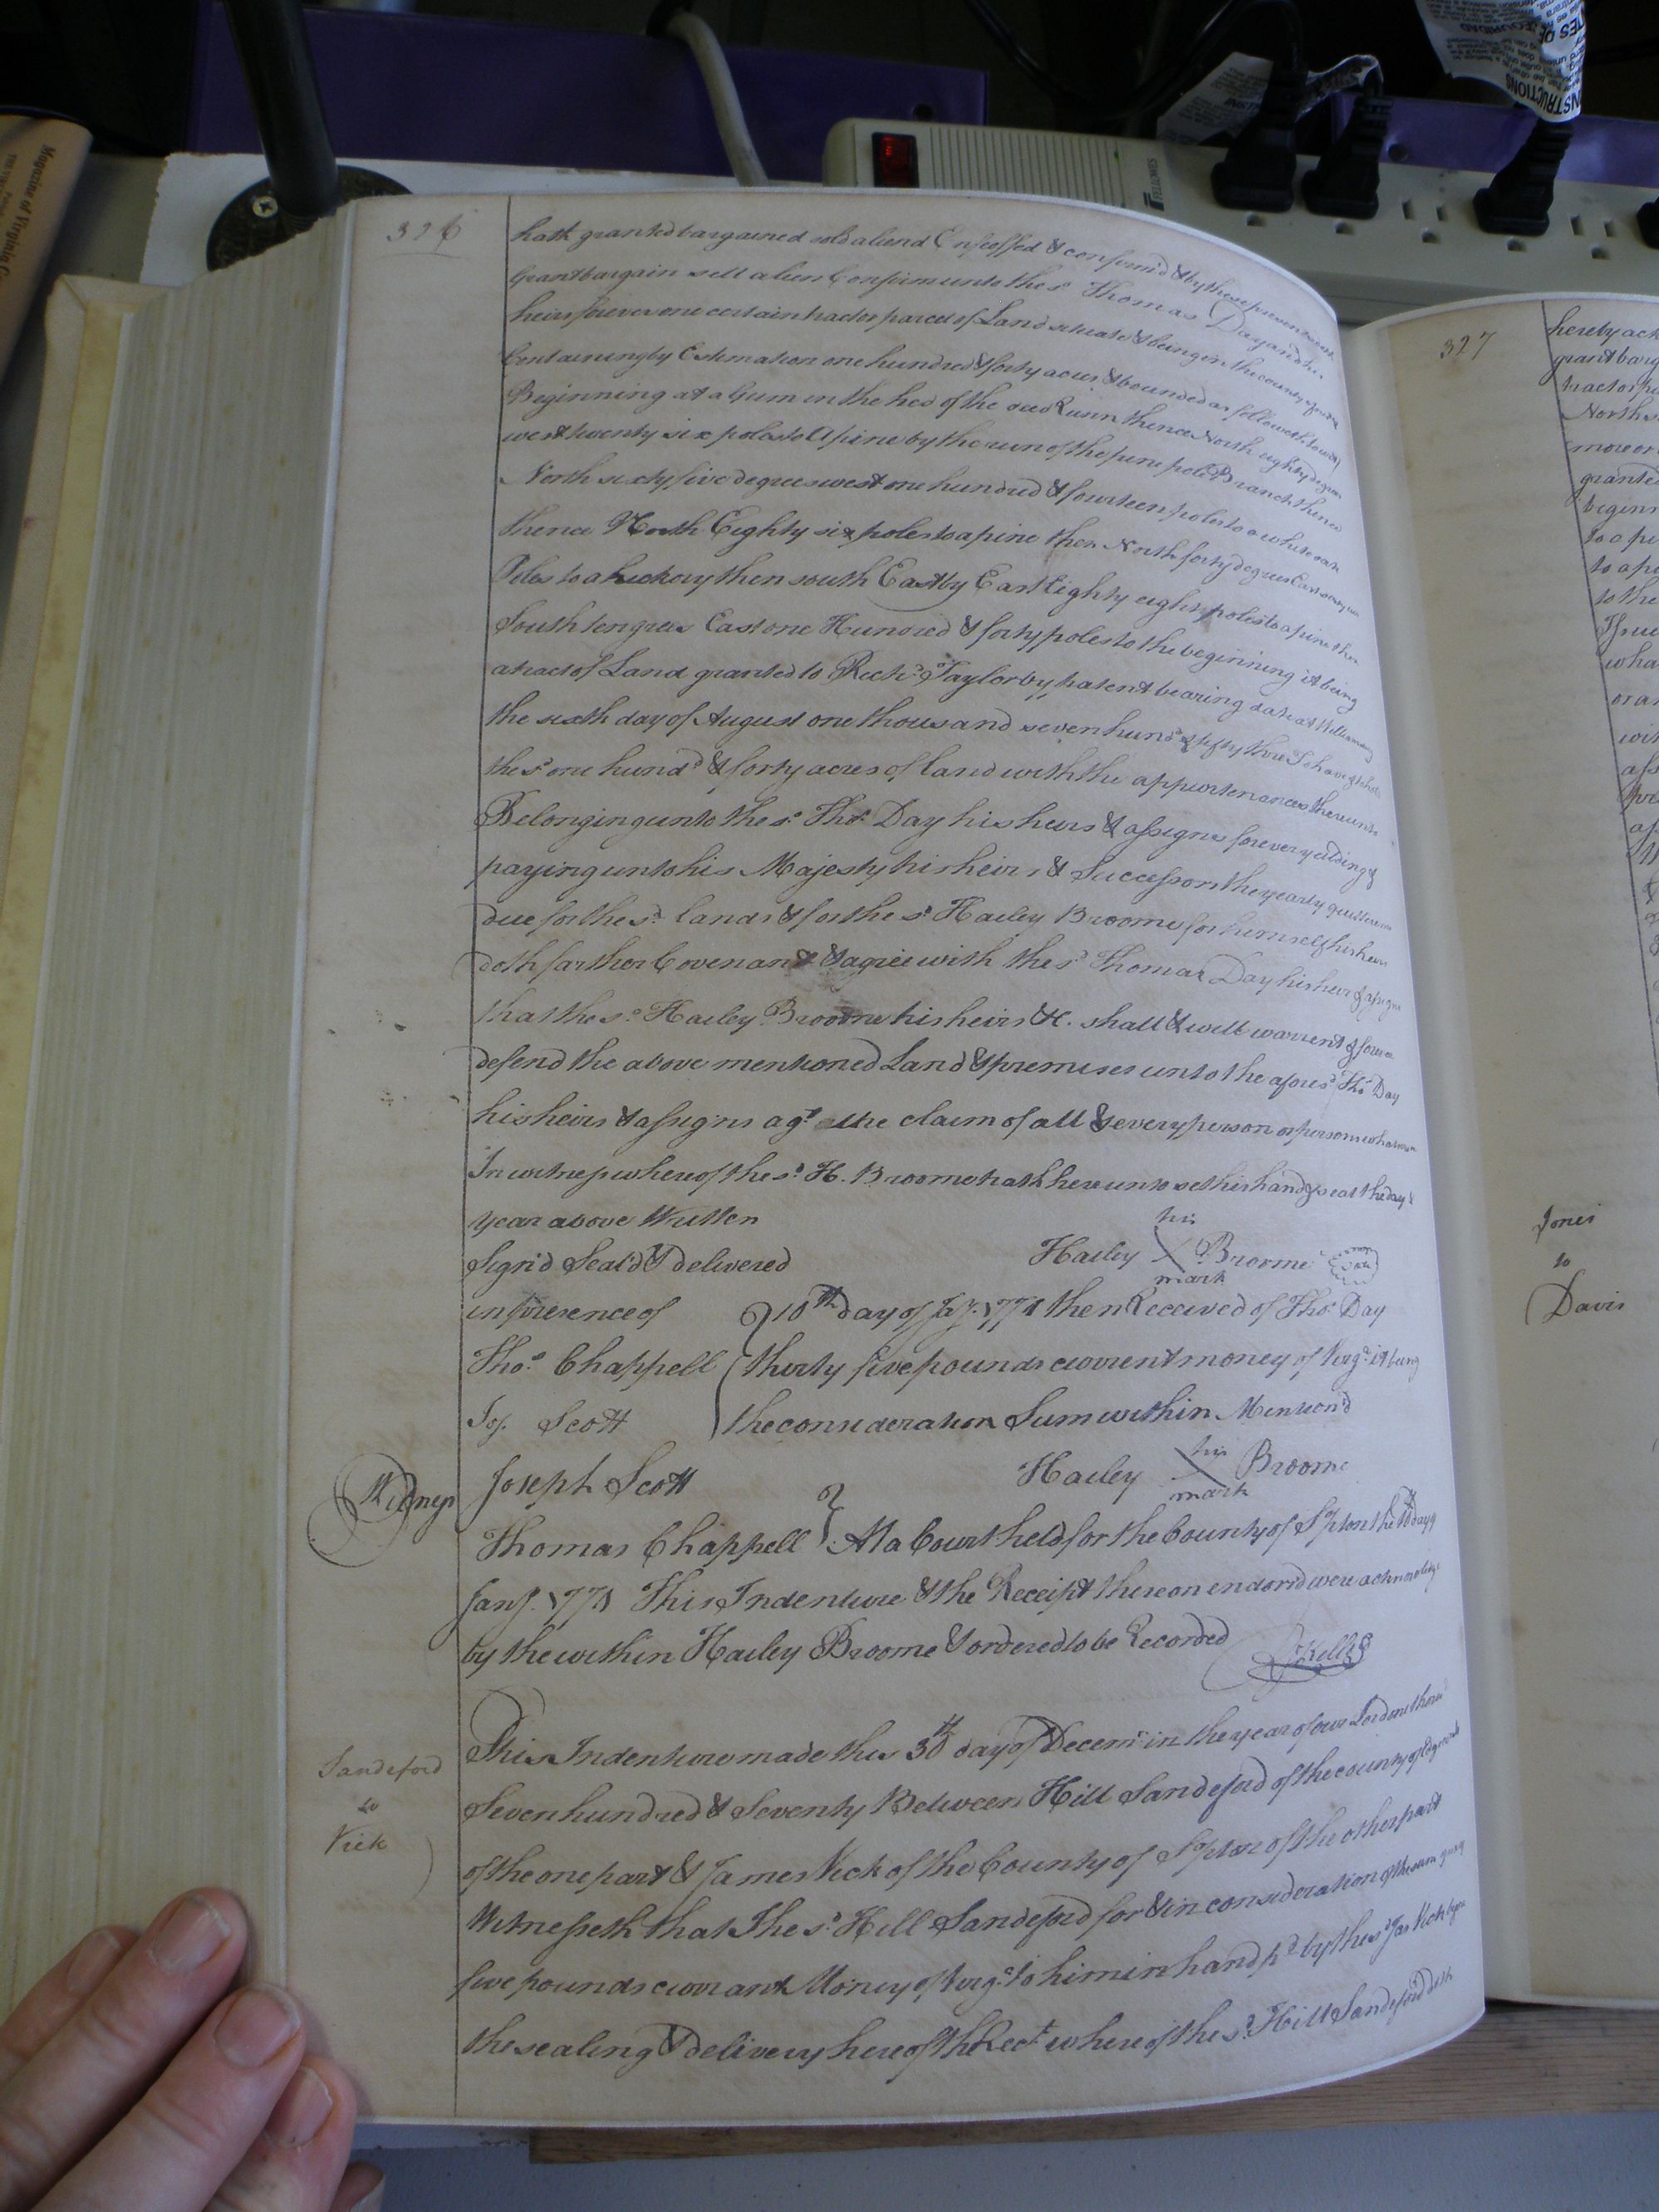 326
hath granted bargained sold aliend Enfeoffed & confirmd & by these presents
Grant bargain sell alien Confirm unto the sd. Thomas Day and his
heirs forever one certain tract or parcel of Land situate & being in the county
Containing by Estimation one hundred & forty acres & bounded as followeth
Beginning at a Gum in the hed of the reed Runn thence North eighty degrees
west twenty six poles to a pine by the run of the pine pole Branch thence
North sixty five degrees west one hundred & fourteen poles to a white oak
thence North Eighty six poles to a pine then North forty degrees East
Poles to a hickory then south East by East Eighty eight poles to a pine then
South ten grees East one Hundred & forty poles to the beginning it being
a tract of Land granted to Richd. Taylor by patent bearing date at Williamsburg
the sixth day of August one thousand seven hund & fifty three To have & to hold
the sd. one hundd. & forty acres of land with the appurtenances thereunto
Belonging unto the sd. Thos. Day his heirs & assigns forever yielding &
paying unto his Majesty his heirs & Successors the yearly quitrents
due for the sd. lands & for the sd. Hailey Broome for himself his heirs
doth farther Covenant & agree with the sd. Thomas Day his heirs & assigns
that the sd. Hailey Broome his heirs &c. shall & will warrent & forever
defend the above mentioned Land & premises unto the afores'd Thos. Day
his heirs & assigns agt. the claim of all & every person or persons whatsoever
In witness whereof the sd. H. Broome hath hereunto set his hand & seal the day &
year above Written
Signd Seald & delivered
in presence of
Thos. Chappell
Jos. Scott
his
Hailey X Broome Seal
mark
10th day of Jay. 1771 then Received of Thos. Day
thirty five pounds current money of Virga. it being
the consideration Sum within Mention'd
Witness
Joseph Scott
Thomas Chappell
his
Hailey X Broome
mark
At a Court held for the County of S'pton the 10th day of
Jany. 1771 This Indenture & the Receipt thereon endorsd were acknowledgd
by the within Hailey Broome & ordered to be Recorded
Kello
Sandeford
to
Vick
This Indenture made this 30th day of Decemr. in the year of our Lord one thousd
Seven hundred & Seventy Between Hill Sandeford of the county of
of the one part & James Vick of the County of S'pton of the other part
Witnesseth that The sd. Hill Sandeford for & in consideration of the sum
five pounds currant Money of Virga. to him in hand pd. by the sd. Jas Vick
the sealing & delivery hereof the Rect. whereof the sd. Hill Sandeford doth
327
hereby ack
grant barg
North
more or
granted
begin
to a pi
to a
to the
Jones
to
Davis
FELLOWES
INSTRUCTIONS
Magazine of Virginia